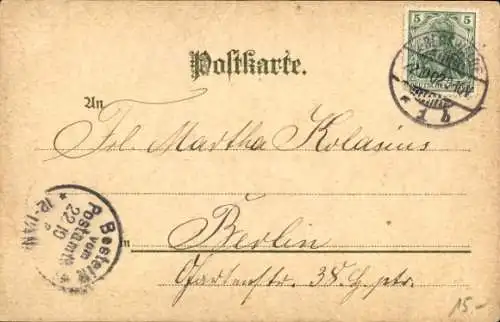 5 5
Postkarte.
An
Frl. Martha Kolasius
in Berlin
Gartenstr. 35. H. ptr.
Bestellt
vom
Postamte
22.10
12-1/4N
1 b
15.-